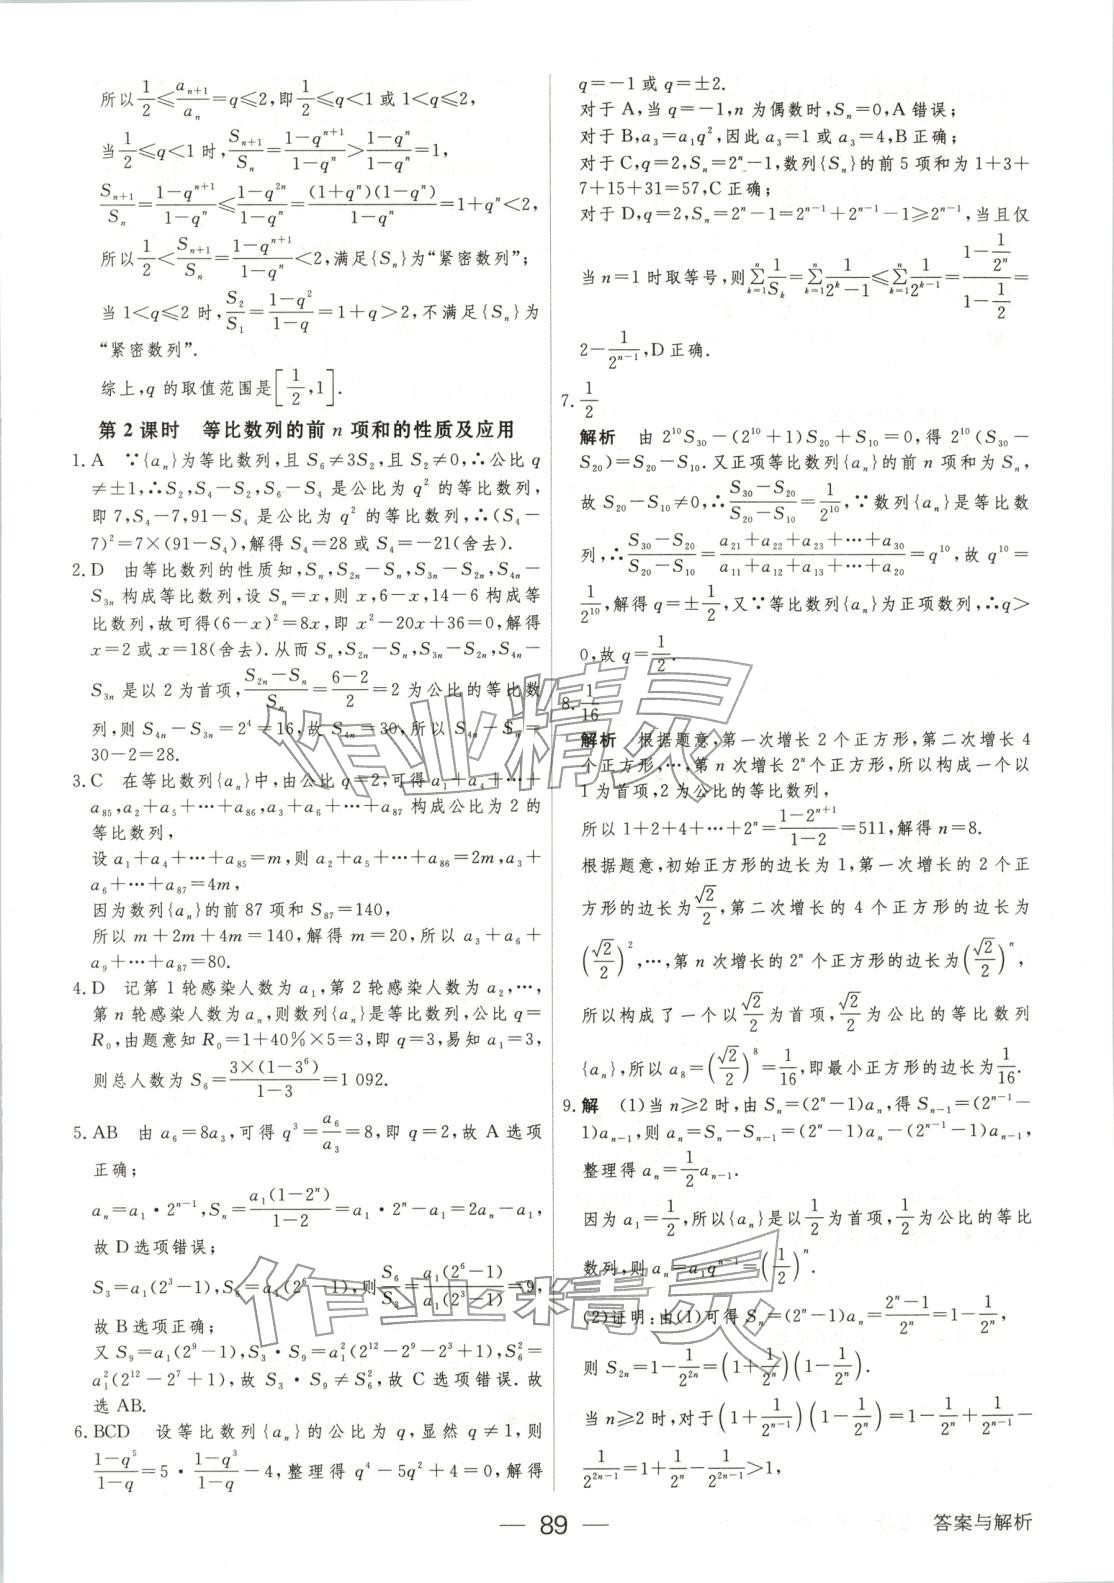 所以1/2≤a_{n+1}/a_n=q≤2,即1/2≤q<1或1<q≤2,
当1/2≤q<1时,S_{n+1}/S_n=(1-q^{n+1})/(1-q^n)>(1-q^n)/(1-q^n)=1,
S_{n+1}/S_n=(1-q^{n+1})/(1-q^n)≤(1-q^{2n})/(1-q^n)=(1+q^n)(1-q^n)/(1-q^n)=1+q^n<2,
所以1/2<S_{n+1}/S_n=(1-q^{n+1})/(1-q^n)<2,满足{S_n}为“紧密数列”;
当1<q≤2时,S_2/S_1=(1-q^2)/(1-q)=1+q>2,不满足{S_n}为
“紧密数列”.
综上,q的取值范围是[1/2,1].
第2课时 等比数列的前n项和的性质及应用
1.A ∵{a_n}为等比数列,且S_6≠3S_2,且S_2≠0,∴公比q
≠±1,∴S_2,S_4-S_2,S_6-S_4是公比为q^2的等比数列,
即7,S_4-7,91-S_4是公比为q^2的等比数列,∴(S_4-
7)^2=7×(91-S_4),解得S_4=28或S_4=-21(舍去).
2.D 由等比数列的性质知,S_n,S_{2n}-S_n,S_{3n}-S_{2n},S_{4n}-
S_{3n}构成等比数列,设S_n=x,则x,6-x,14-6构成等
比数列,故可得(6-x)^2=8x,即x^2-20x+36=0,解得
x=2或x=18(舍去).从而S_n,S_{2n}-S_n,S_{3n}-S_{2n},S_{4n}-
S_{3n}是以2为首项,(S_{2n}-S_n)/S_n=(6-2)/2=2为公比的等比数
列,则S_{4n}-S_{3n}=2^4=16,故S_{4n}=30,所以S_{4n}-S_n=
30-2=28.
3.C 在等比数列{a_n}中,由公比q=2,可得a_1+a_4+…+
a_{85},a_2+a_5+…+a_{86},a_3+a_6+…+a_{87}构成公比为2的
等比数列,
设a_1+a_4+…+a_{85}=m,则a_2+a_5+…+a_{86}=2m,a_3+
a_6+…+a_{87}=4m,
因为数列{a_n}的前87项和S_{87}=140,
所以m+2m+4m=140,解得m=20,所以a_3+a_6+
a_9+…+a_{87}=80.
4.D 记第1轮感染人数为a_1,第2轮感染人数为a_2,…,
第n轮感染人数为a_n,则数列{a_n}是等比数列,公比q=
R_0,由题意知R_0=1+40%×5=3,即q=3,易知a_1=3,
则总人数为S_6=3×(1-3^6)/(1-3)=1 092.
5.AB 由a_6=8a_3,可得q^3=a_6/a_3=8,即q=2,故A选项
正确;
a_n=a_1·2^{n-1},S_n=a_1(1-2^n)/(1-2)=a_1·2^n-a_1=2a_n-a_1,
故D选项错误;
S_3=a_1(2^3-1),S_6=a_1(2^6-1),则S_6/S_3=a_1(2^6-1)/a_1(2^3-1)=9,
故B选项正确;
又S_9=a_1(2^9-1),S_3·S_9=a_1^2(2^{12}-2^9-2^3+1),S_6^2=
a_1^2(2^{12}-2^7+1),故S_3·S_9≠S_6^2,故C选项错误.故
选AB.
6.BCD 设等比数列{a_n}的公比为q,显然q≠1,则
(1-q^5)/(1-q)=5·(1-q^3)/(1-q)-4,整理得q^4-5q^2+4=0,解得
q=-1或q=±2.
对于A,当q=-1,n为偶数时,S_n=0,A错误;
对于B,a_3=a_1q^2,因此a_3=1或a_3=4,B正确;
对于C,q=2,S_n=2^n-1,数列{S_n}的前5项和为1+3+
7+15+31=57,C正确;
对于D,q=2,S_n=2^n-1=2^{n-1}+2^{n-1}-1≥2^{n-1},当且仅
当n=1时取等号,则∑_{k=1}^{n}1/S_k=∑_{k=1}^{n}1/(2^k-1)≤∑_{k=1}^{n}1/2^{k-1}=(1-1/2^n)/(1-1/2)=
2-1/2^{n-1},D正确.
7.1/2
解析 由2^{10}S_{30}-(2^{10}+1)S_{20}+S_{10}=0,得2^{10}(S_{30}-
S_{20})=S_{20}-S_{10}.又正项等比数列{a_n}的前n项和为S_n,
故S_{20}-S_{10}≠0,∴(S_{30}-S_{20})/(S_{20}-S_{10})=1/2^{10},∵数列{a_n}是等比数
列,∴(S_{30}-S_{20})/(S_{20}-S_{10})=(a_{21}+a_{22}+a_{23}+…+a_{30})/(a_{11}+a_{12}+a_{13}+…+a_{20})=q^{10},故q^{10}=
1/2^{10},解得q=±1/2,又∵等比数列{a_n}为正项数列,∴q>
0,故q=1/2.
8.1/16
解析 根据题意,第一次增长2个正方形,第二次增长4
个正方形,…,第n次增长2^n个正方形,所以构成一个以
1为首项,2为公比的等比数列,
所以1+2+4+…+2^n=(1-2^{n+1})/(1-2)=511,解得n=8.
根据题意,初始正方形的边长为1,第一次增长的2个正
方形的边长为√2/2,第二次增长的4个正方形的边长为
(√2/2)^2,…,第n次增长的2^n个正方形的边长为(√2/2)^n,
所以构成了一个以√2/2为首项,√2/2为公比的等比数列
{a_n},所以a_8=(√2/2)^8=1/16,即最小正方形的边长为1/16.
9.解 (1)当n≥2时,由S_n=(2^n-1)a_n,得S_{n-1}=(2^{n-1}-
1)a_{n-1},则a_n=S_n-S_{n-1}=(2^n-1)a_n-(2^{n-1}-1)a_{n-1},
整理得a_n=1/2a_{n-1}.
因为a_1=1/2,所以{a_n}是以1/2为首项,1/2为公比的等比
数列,则a_n=a_1q^{n-1}=(1/2)^n.
(2)证明:由(1)可得S_n=(2^n-1)a_n=(2^n-1)/2^n=1-1/2^n,
则S_{2n}=1-1/2^{2n}=(1+1/2^n)(1-1/2^n).
当n≥2时,对于(1+1/2^{n-1})(1-1/2^n)=1-1/2^n+1/2^{n-1}-
1/2^{2n-1}=1+1/2^n-1/2^{2n-1}>1,
— 89 —
答案与解析
作业精灵
作业精灵